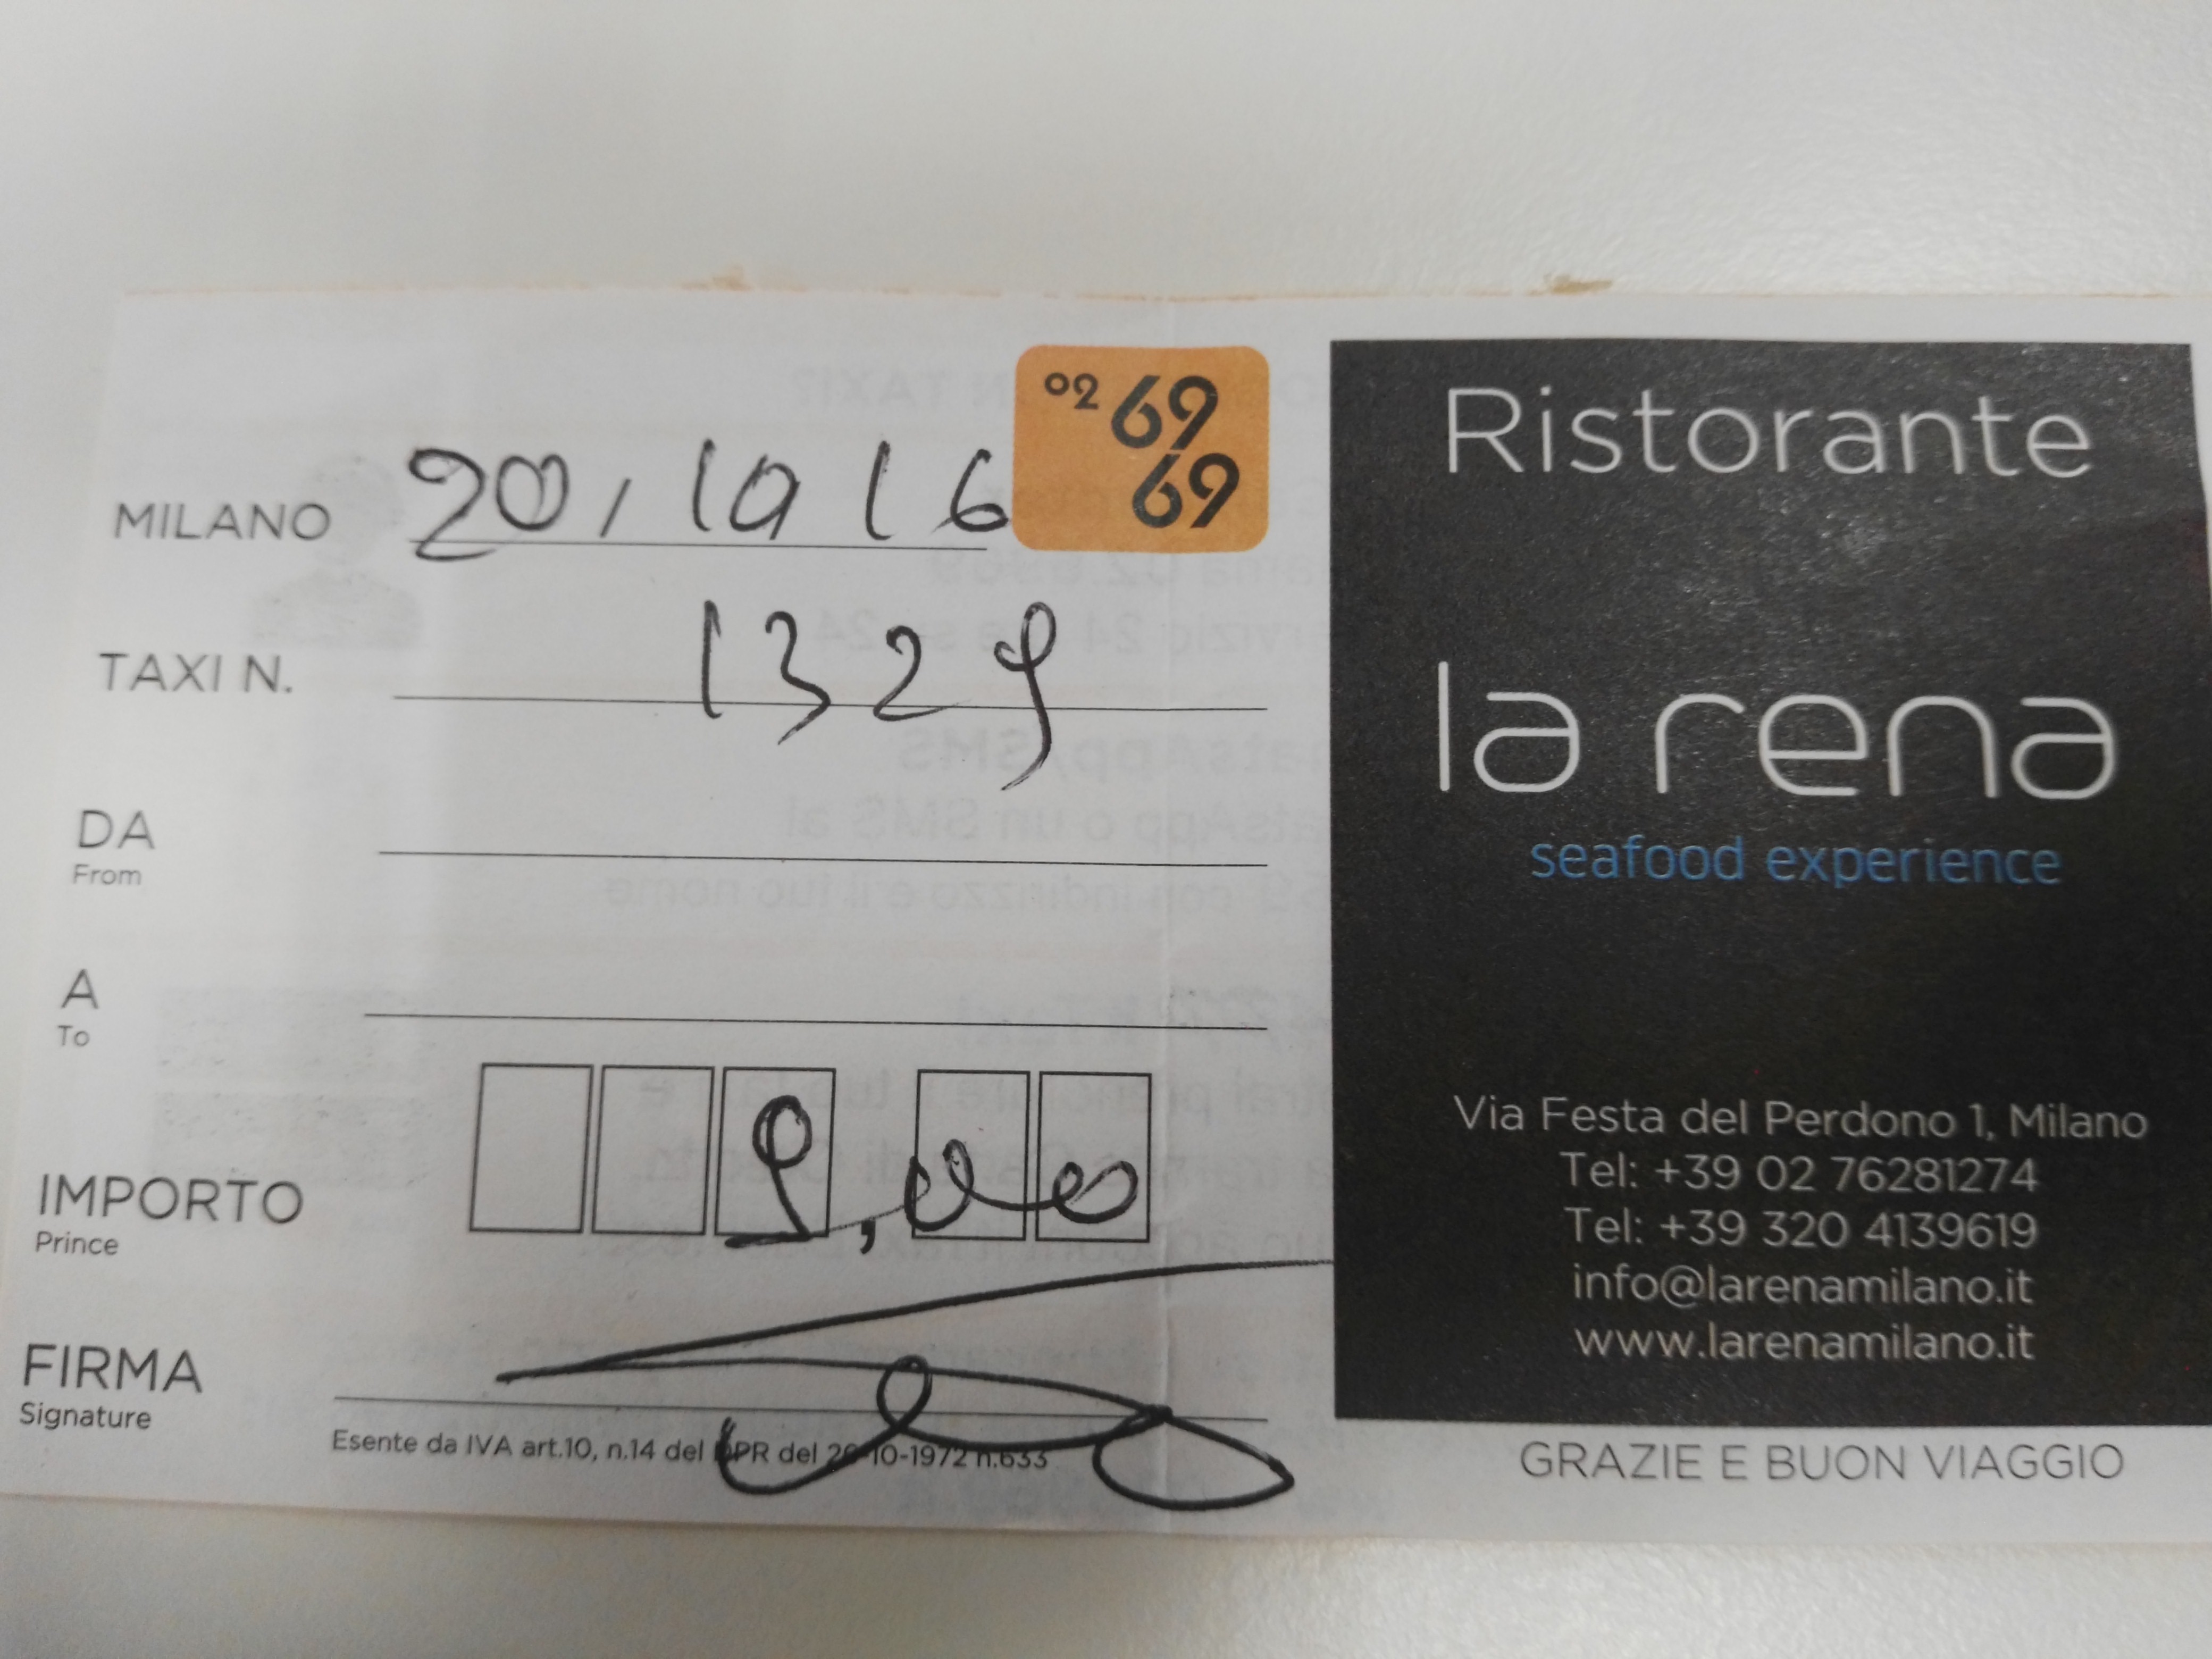 02 69
69
MILANO 20/10 16
TAXI N. 1329
DA
From
A
To
IMPORTO 9,00
Prince
FIRMA
Signature
Esente da IVA art.10, n.14 del DPR del 26-10-1972 n.633
Ristorante
la rena
seafood experience
Via Festa del Perdono 1, Milano
Tel: +39 02 76281274
Tel: +39 320 4139619
info@larenamilano.it
www.larenamilano.it
GRAZIE E BUON VIAGGIO